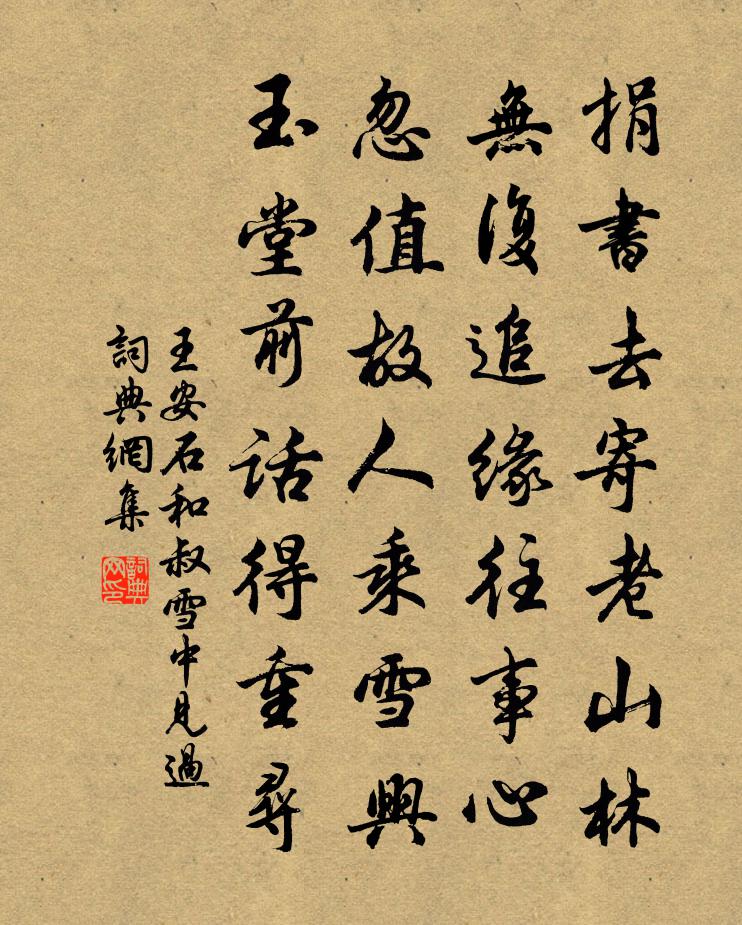 捐書去寄老山林
無復追緣往事心
忽值故人乘雪興
玉堂前話得重尋
王安石和叔雪中見過
詞典網集
詞典網印